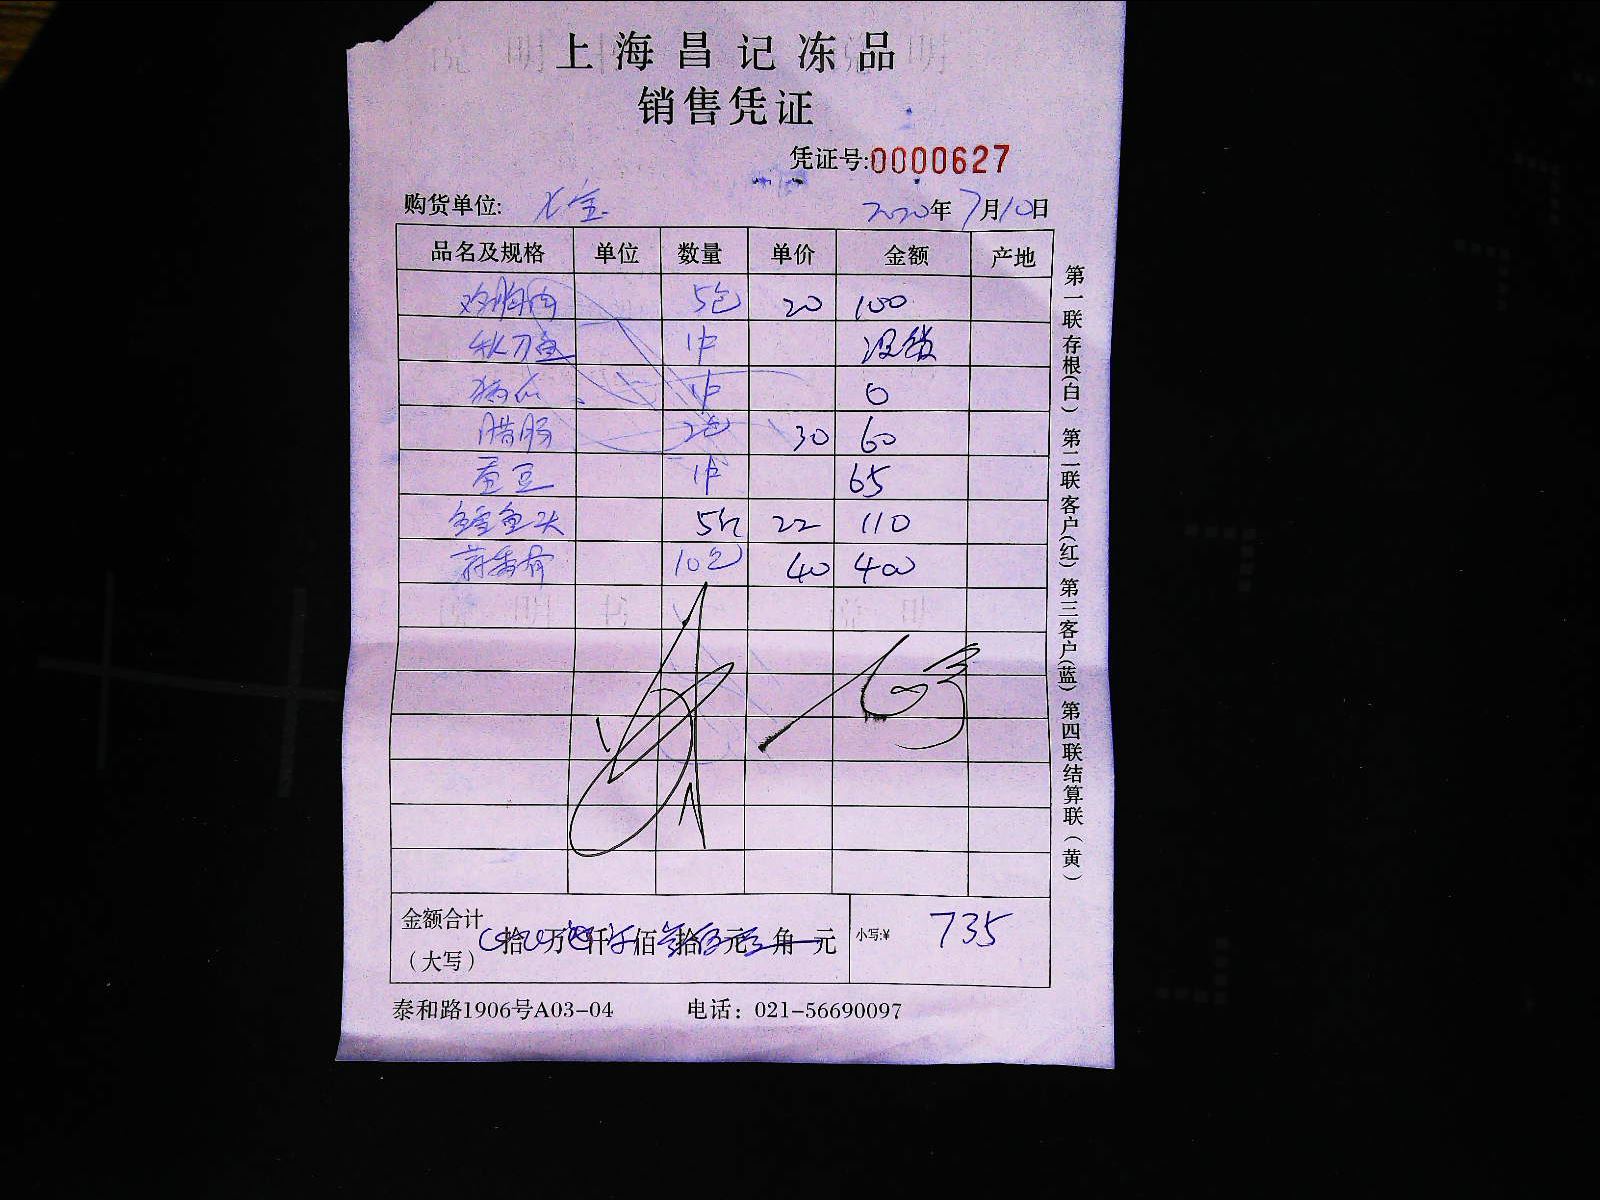 上海昌记冻品
销售凭证
凭证号:0000627
购货单位: 七宝 2020年7月10日
品名及规格 单位 数量 单价 金额 产地
鸡胸肉 5包 20 100
秋刀鱼 1件 没货
1件 0
腊肠 2包 30 60
蚕豆 1件 65
鱼头 5包 22 110
10包 40 400
金额合计
（大写） 拾 万 仟 佰 拾 元 角 元 小写:¥ 735
泰和路1906号A03-04 电话：021-56690097
第一联存根(白) 第二联客户(红) 第三客户(蓝) 第四联结算联(黄)